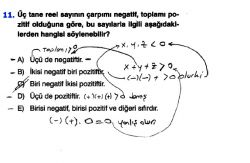 11. Üç tane reel sayının çarpımı negatif, toplamı pozitif olduğuna göre, bu sayılarla ilgili aşağıdakilerden hangisi söylenebilir?
x . y . z < 0
A) Üçü de negatiftir.
x + y + z > 0
B) İkisi negatif biri pozitiftir.
(-)(-) +
C) Birisi negatif ikisi pozitiftir.
D) Üçü de pozitiftir. (+)(+)(+) > 0
E) Birisi negatif, birisi pozitif ve diğeri sıfırdır.
(-)(+) . 0 = 0